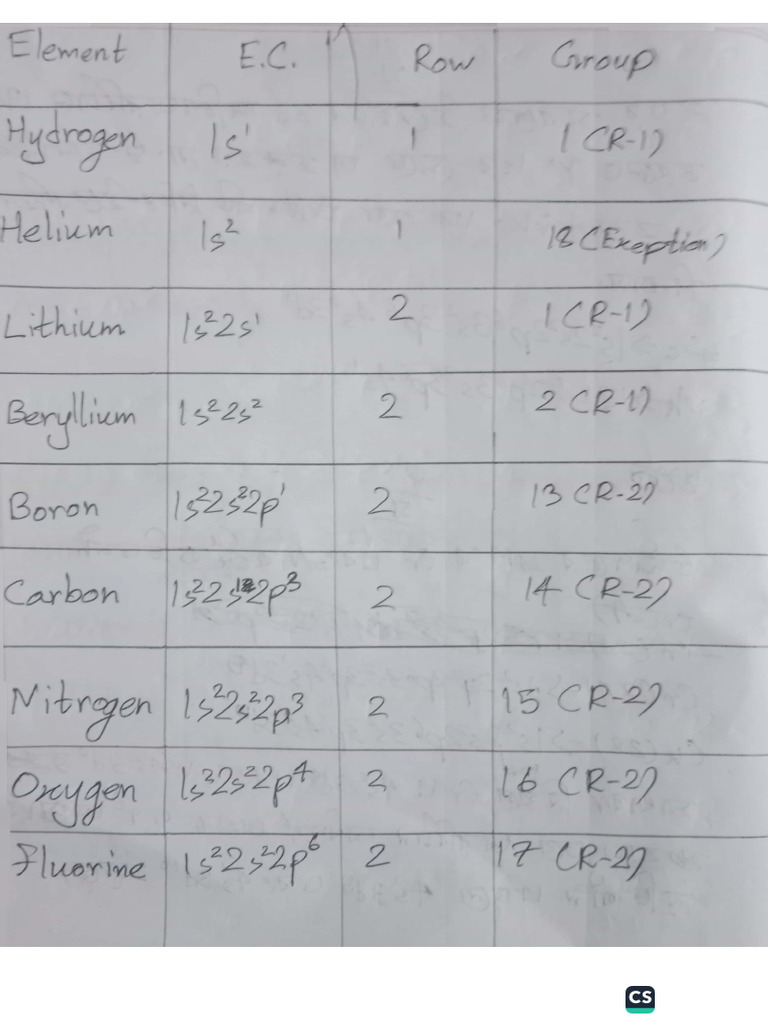 Element E.C. Row Group
Hydrogen 1s¹ 1 1 (R-1)
Helium 1s² 1 18 (Exeption)
Lithium 1s²2s¹ 2 1 (R-1)
Beryllium 1s²2s² 2 2 (R-1)
Boron 1s²2s²2p¹ 2 13 (R-2)
Carbon 1s²2s²2p³ 2 14 (R-2)
Nitrogen 1s²2s²2p³ 2 15 (R-2)
Oxygen 1s²2s²2p⁴ 2 16 (R-2)
Fluorine 1s²2s²2p⁶ 2 17 (R-2)
CS